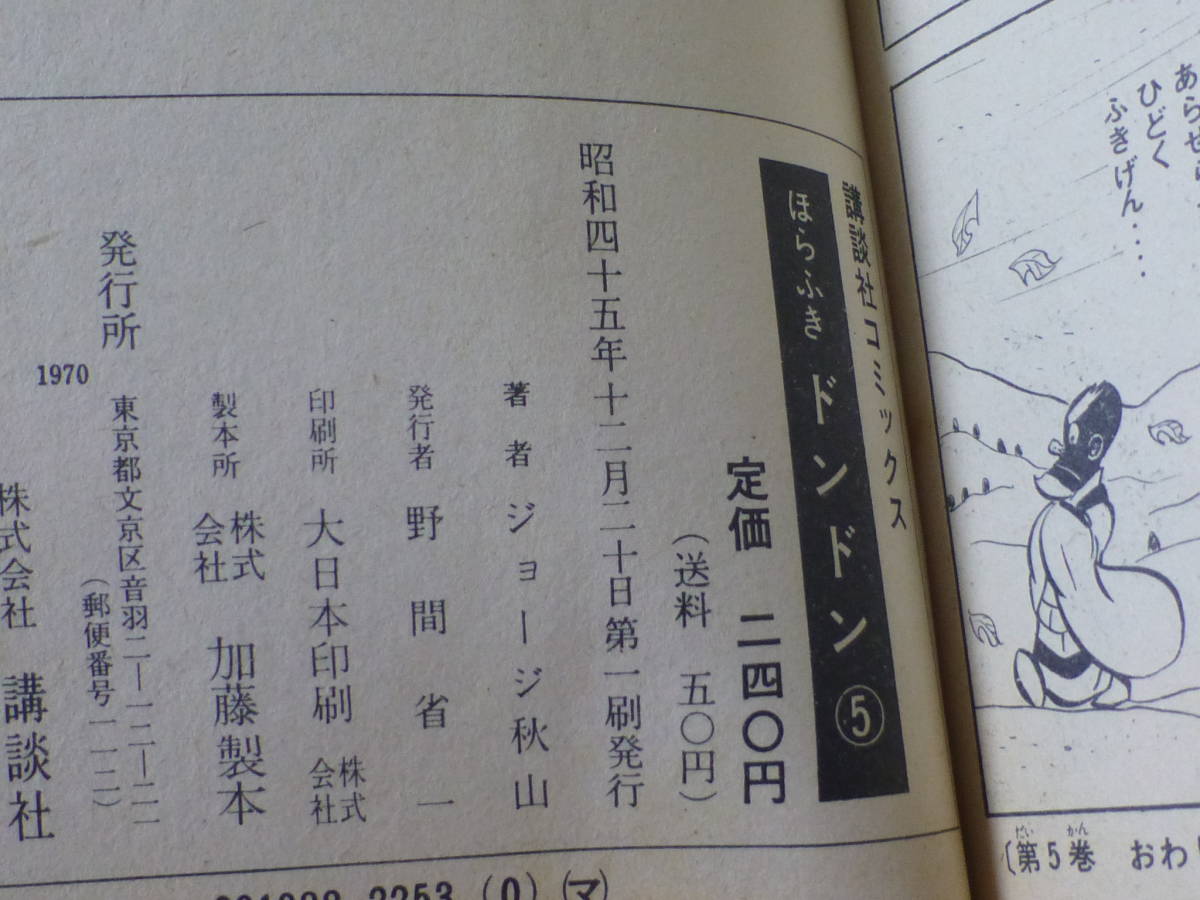 あらせ
ひどく
ふきげん‥‥
〔第5巻 おわ
だい かん
講談社コミックス
ほらふき ドンドン ⑤
定価 二四〇円
(送料 五〇円)
昭和四十五年十二月二十日第一刷発行
著者 ジョージ秋山
発行者 野間省一
印刷所 大日本印刷 株式会社
製本所 株式会社 加藤製本
発行所
東京都文京区音羽二―一二―二一
(郵便番号一一二)
株式会社 講談社
1970
2253 (0) (マ)